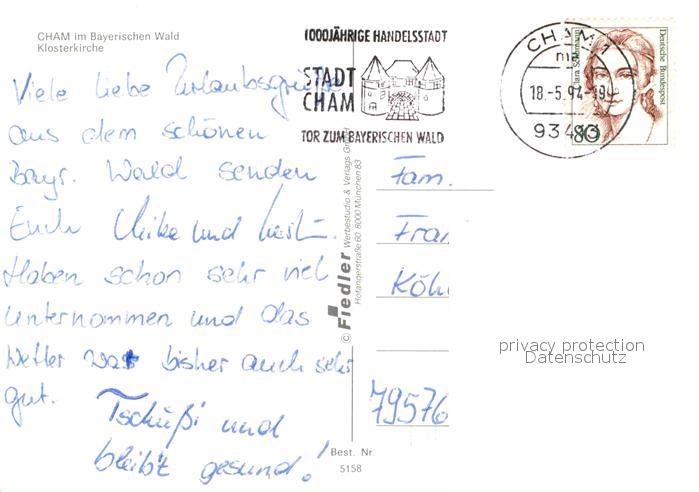 CHAM im Bayerischen Wald
Klosterkirche
1000JÄHRIGE HANDELSSTADT
STADT
CHAM
TOR ZUM BAYERISCHEN WALD
CHAM 1
18.-5.94-19
93413
Deutsche Bundespost
Clara Schumann
80
Viele liebe Urlaubsgrüße
aus dem schönen
Bayr. Wald senden
Euch Ulrike und
Haben schon sehr viel
unternommen und das
Wetter war bisher auch sehr
gut.
Tschüßi und
bleibt gesund!
© Fiedler Werbestudio & Verlags Gm
Hofangerstraße 60 8000 München 83
Fam.
Fra
Köh
79576
privacy protection
Datenschutz
Best. Nr.
5158